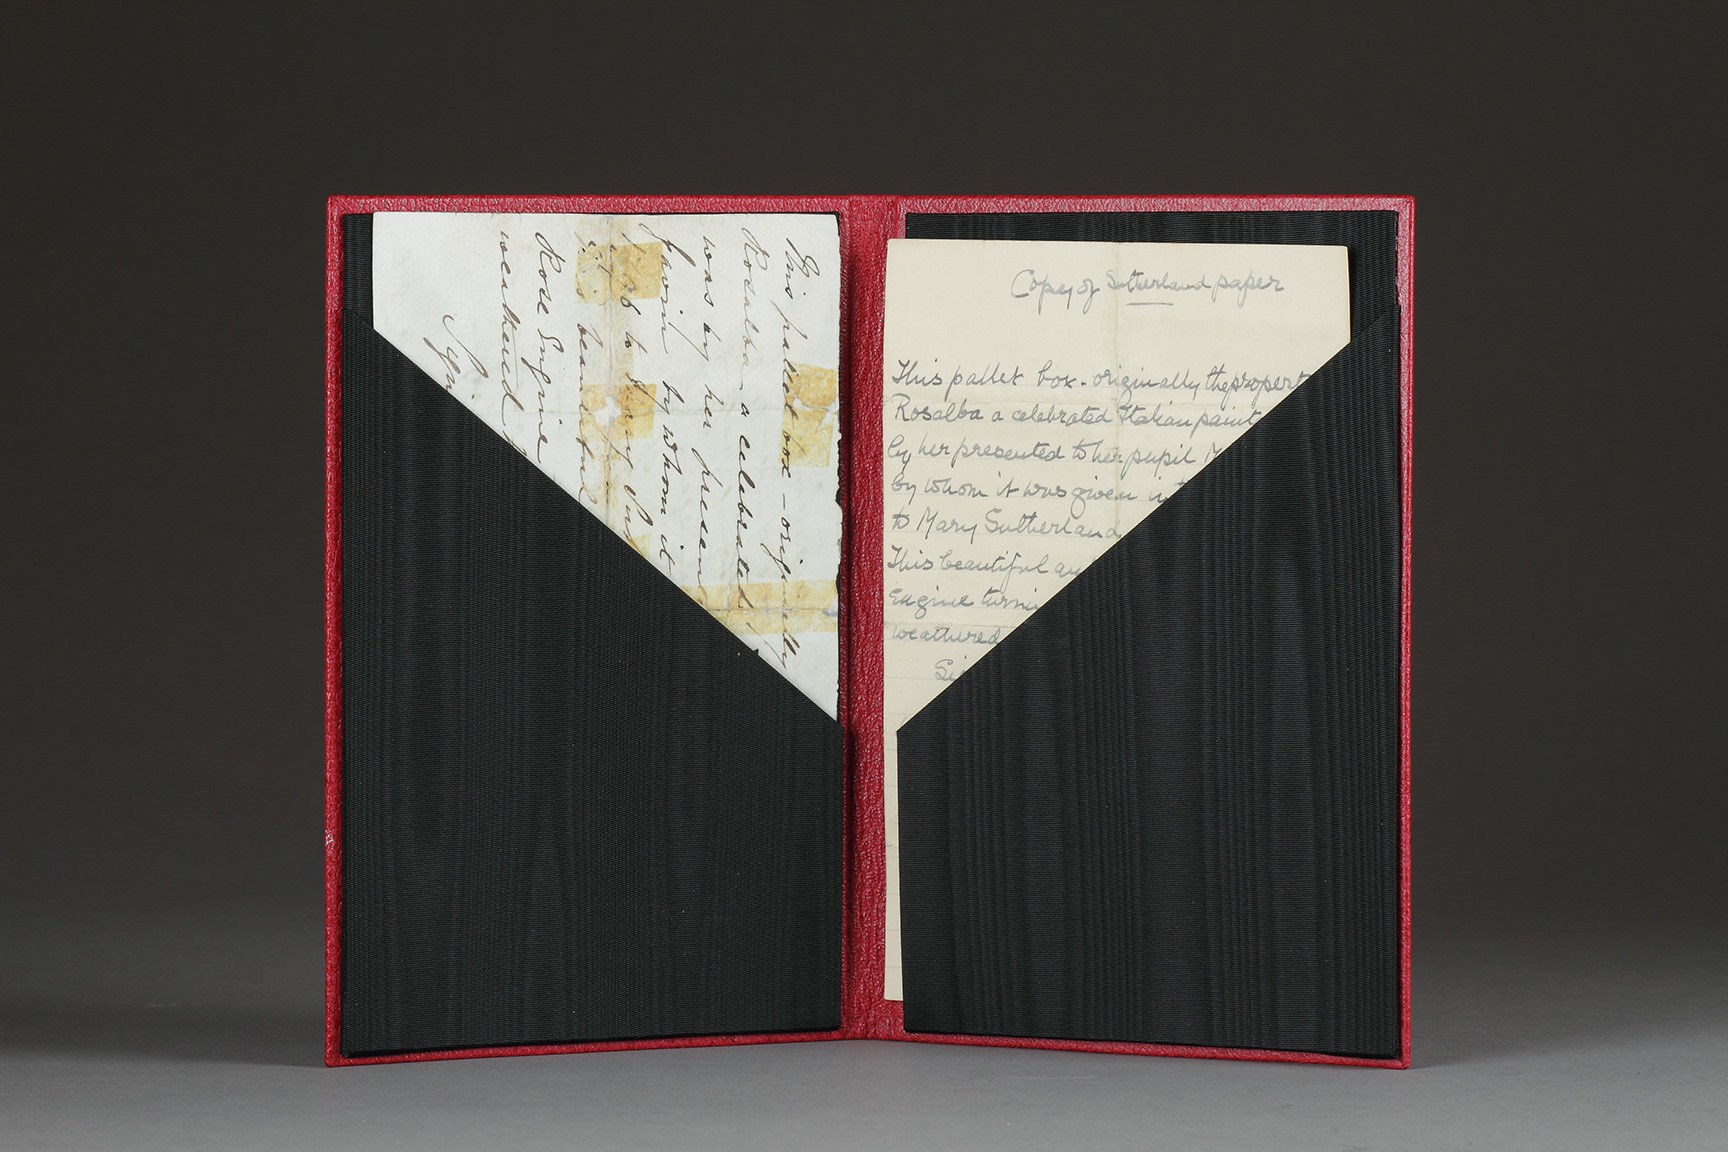 This pallet box – originally
Rosalba – a celebrated
was by her presen
by whom it
to Mary Su
This beautiful
Rose Engine
weathered
Sign
Copey of Sutherland paper
This pallet box - originally the propert
Rosalba a celebrated Italian paint
by her presented to her pupil M
by whom it was given in
to Mary Sutherland
This beautiful
Engine turni
weathered